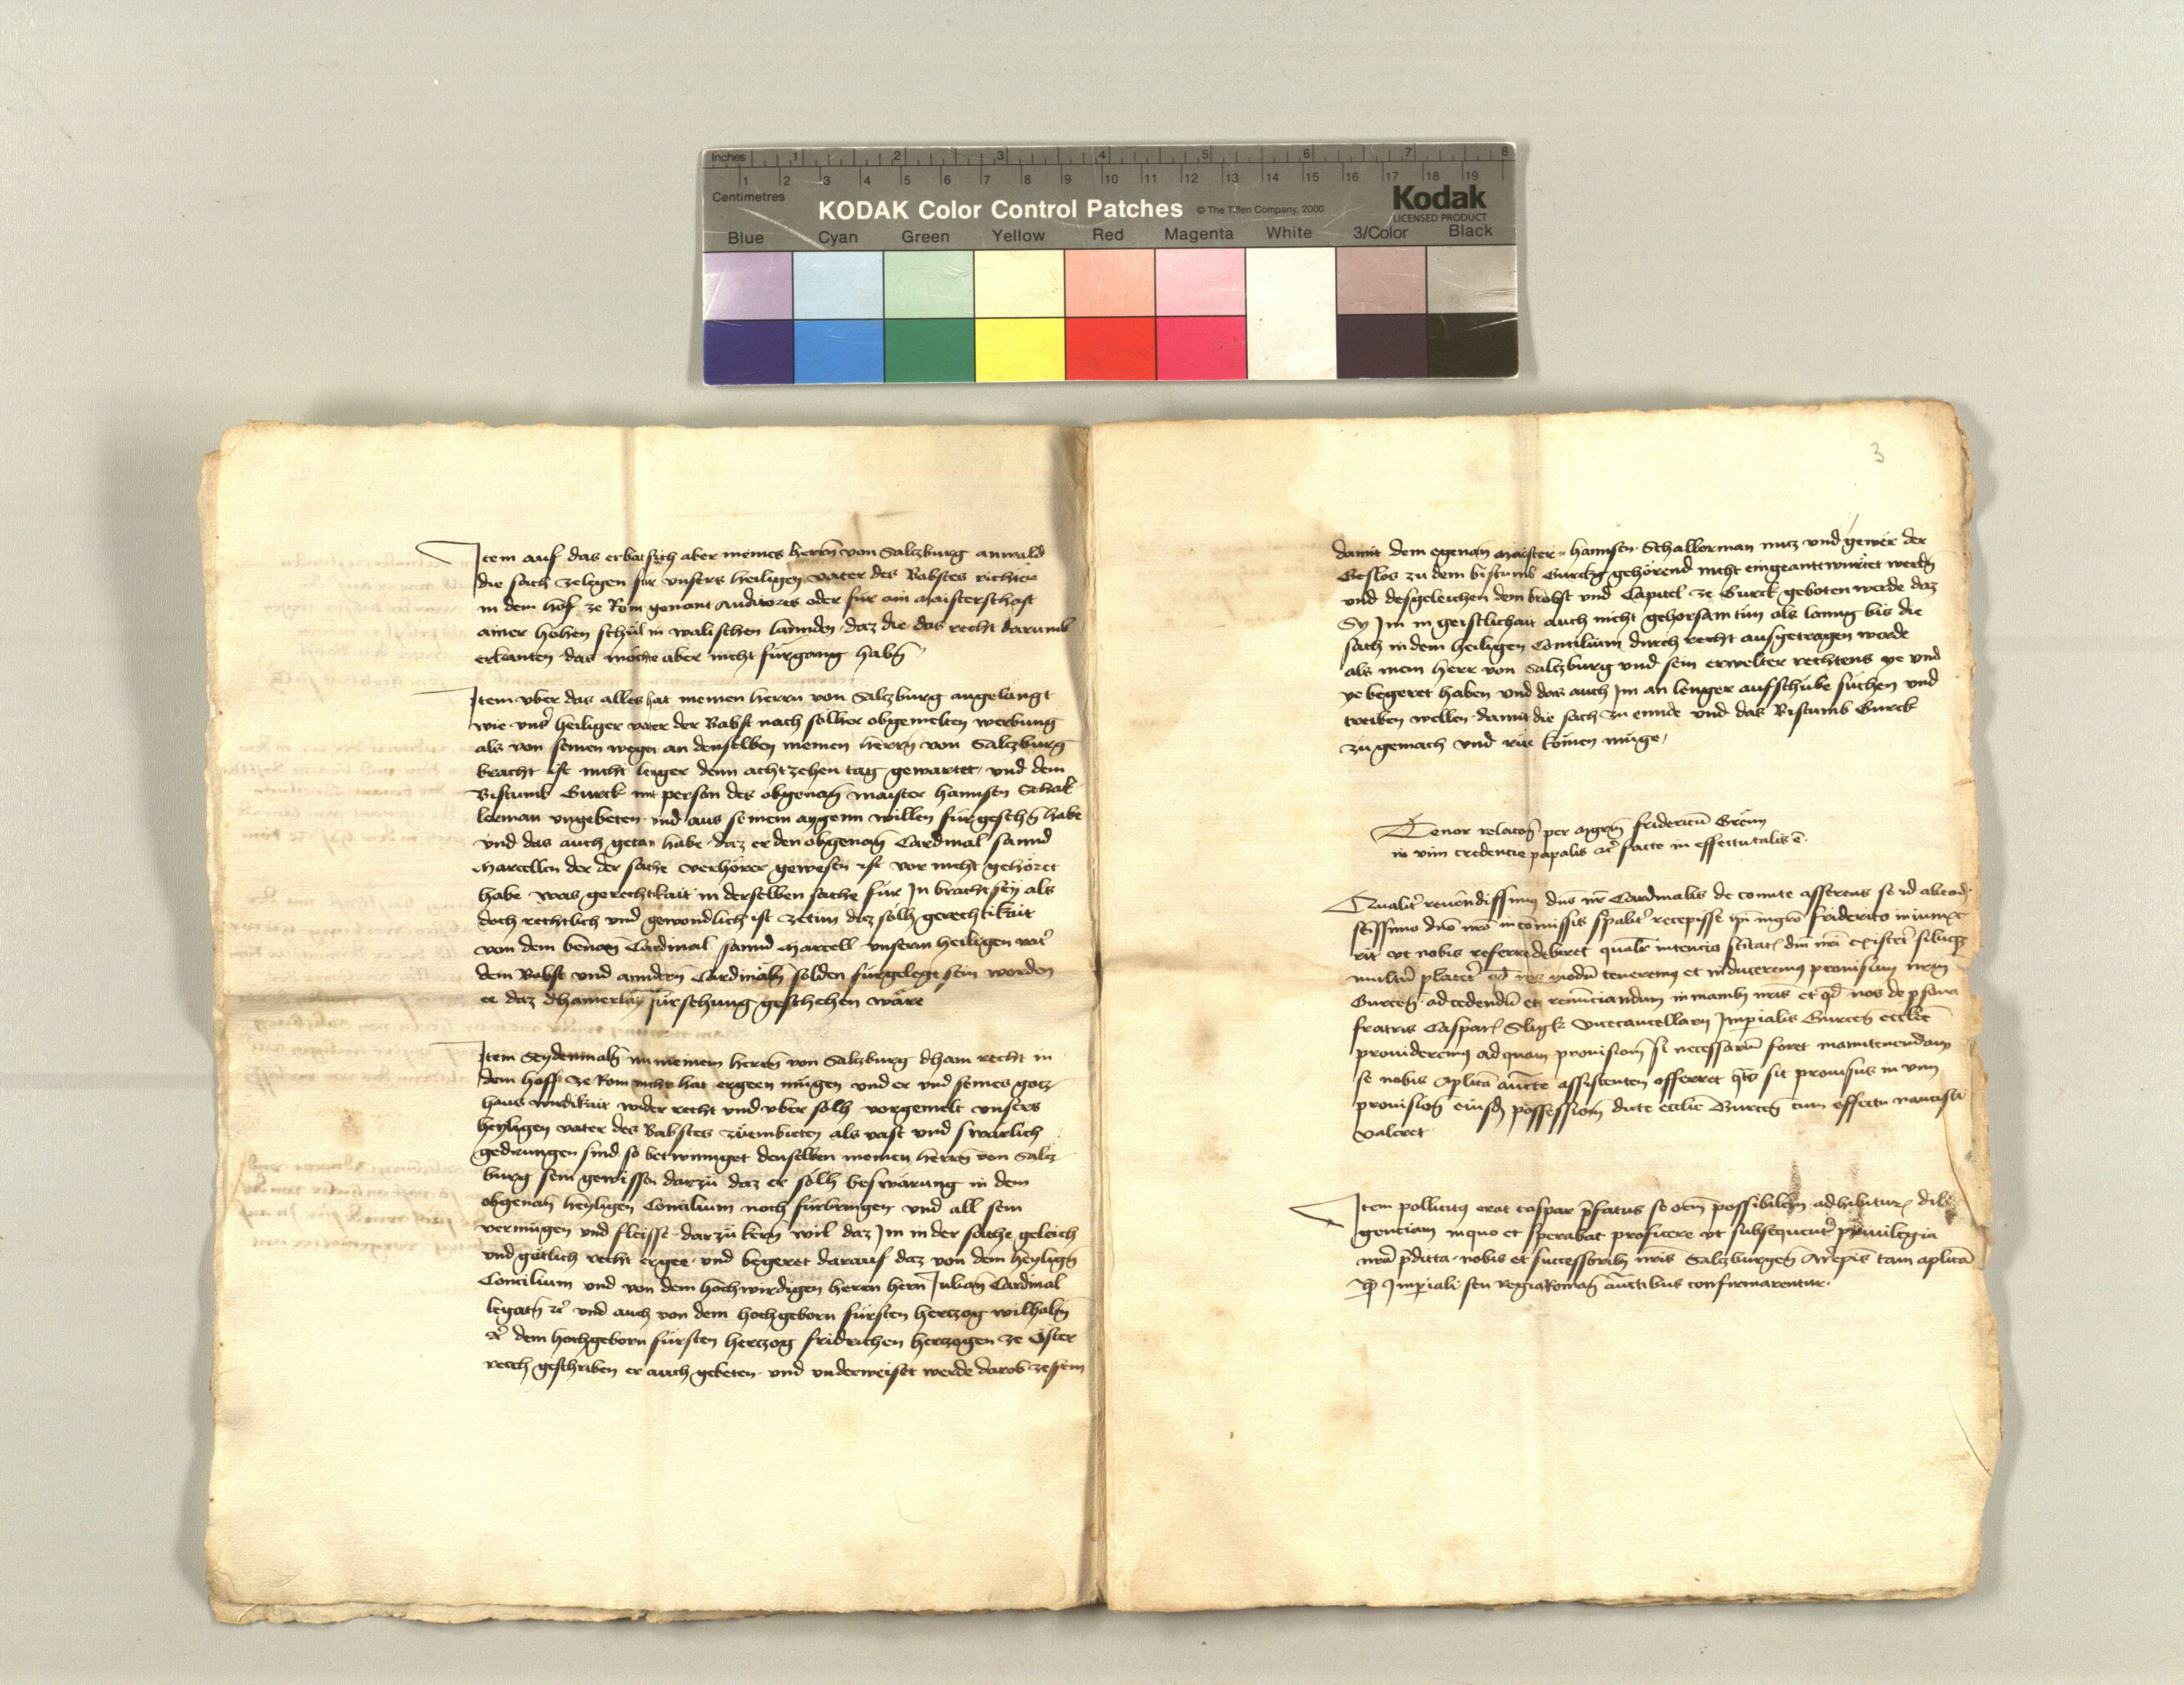 Inches 1 2 3 4 5 6 7 8
Centimetres 1 2 3 4 5 6 7 8 9 10 11 12 13 14 15 16 17 18 19
KODAK Color Control Patches © The Tiffen Company, 2000 Kodak
LICENSED PRODUCT
Blue Cyan Green Yellow Red Magenta White 3/Color Black
Item auf das erbat sich aber meines herrn von Salczburg anwald
die sach zelegen für vnsers heiligen vater des Babstes richter
in dem hof ze Rom genant Auditores oder für ain maisterschaft
ainer hohen schul in walischen lannden daz die das recht darumb
erkanten das mochte aber nicht fürgang habn
Item vber das alles hat meinen herrn von Salczburg angelangt
wie vnser heiliger vater der Babst nach solher obgemelten werbung
als von seinen wegen an denselben meinen herrn von Salczburg
bracht ist nicht lenger denn achtzehen tag gewartet und dem
Bistumb Gurck mit person des obgenan maister hannsen Schal
lerman vngebeten und aus seinem aygenn willen fürgesehn habe
vnd das auch getan habe daz er den obgenan Cardinal sannd
Marcellen der der sache verhörer gewesen ist vor nicht gehöret
habe was gerechtikait in derselben sache für In bracht sey als
doch rechtlich vnd gewondlich ist zetun daz solh gerechtikait
von dem benan Cardinal sannd Marcell vnserm heiligen vater
dem Babst vnd anndern Cardinaln solden fürgelegt sein worden
ee daz dhainerlay fürsehung geschehen wäre
Item Seydenmaln nu meinem herrn von Salczburg dham recht in
dem hoff ze Rom nicht hat ergeen mügen vnd er vnd seines gotz
haus wirdikait wider recht vnd vber solh vorgemelt vnsers
heyligen vater des Babstes zuembieten als vast vnd swärlich
gedrungen sind so betwinnget denselben meinen herrn von Salcz
burg sein gewissen darzu daz er solh beswärung in dem
obgenan heyligen Concilium noch fürbringen vnd all sein
vermügen vnd fleisse darzu kern wil daz Im in der sache geleich
vnd götlich recht ergee vnd begeret darauf daz von dem heyligen
Concilium vnd von dem hochwirdigen herrn hern Julian Cardinal
legatn etc vnd auch von dem hochgeborn fürsten herczog wilhalm
etc dem hochgeborn fürsten herczog fridrichen herczogen ze Öster
reich geschriben er auch gebeten vnd vnderweiset werde darob zesein
3
damit dem egenan maister hannsen Schallerman nucz vnd gewer der
Geslos zu dem bistumb Gurck gehörend nicht eingeantwurtet werdn
vnd desgeleichen dem brobst vnd Capitel ze Gurck geboten werde daz
Sy Im in geistlichait auch nicht gehorsam tun als lanng bis die
sach in dem heiligen Concilium durch recht ausgetragen werde
als mein herr von Salczburg vnd sein erwelter rechtens ye vnd
ye begeret haben vnd des auch Im an lenger aufschube suchen vnd
treiben wellen damit die sach zu ennde vnd das Bistumb Gurck
zu gemach vnd rue komen müge
Tenor relaton per mgrm fridericu Grën
in vim credencie papalis etc facte in effectu talis e
Qualit reuendissimus dns nr Cardinalis de comite asserens se id ab eod
scissimo dno nro in comissis spalit recepisse ipi mgro friderico iniunx
rit vt nobis referre deberet qualit intencio scitatis dni nri existeret sibique
multu placet vt nos modu teneremus et induceremus prouisum nrm
Gurcen ad cedendu et renunciandum in manib nris et qd nos de psona
fratris Caspar Sligk vicecancellarij Imperialis Gurcen ecclie
prouideremus ad quam prouisiom si necessariu foret manutenendam
se nobis aplica aucte assistentem offerret qts sit prouisus in vim
prouision eiusd possessiom dicte ecclie Gurcen cum effectu nancisci
valeret
Item pollicitus erat caspar pfatus se oem possibilem adhibitur dili
genciam in quo et sperabat proficere vt subsequent priuilegia
nra pdicta nobis et successorib nris Salzburgen Arepis tam aplica
qz Imperiali seu regia Roman auctibus confirmarentur